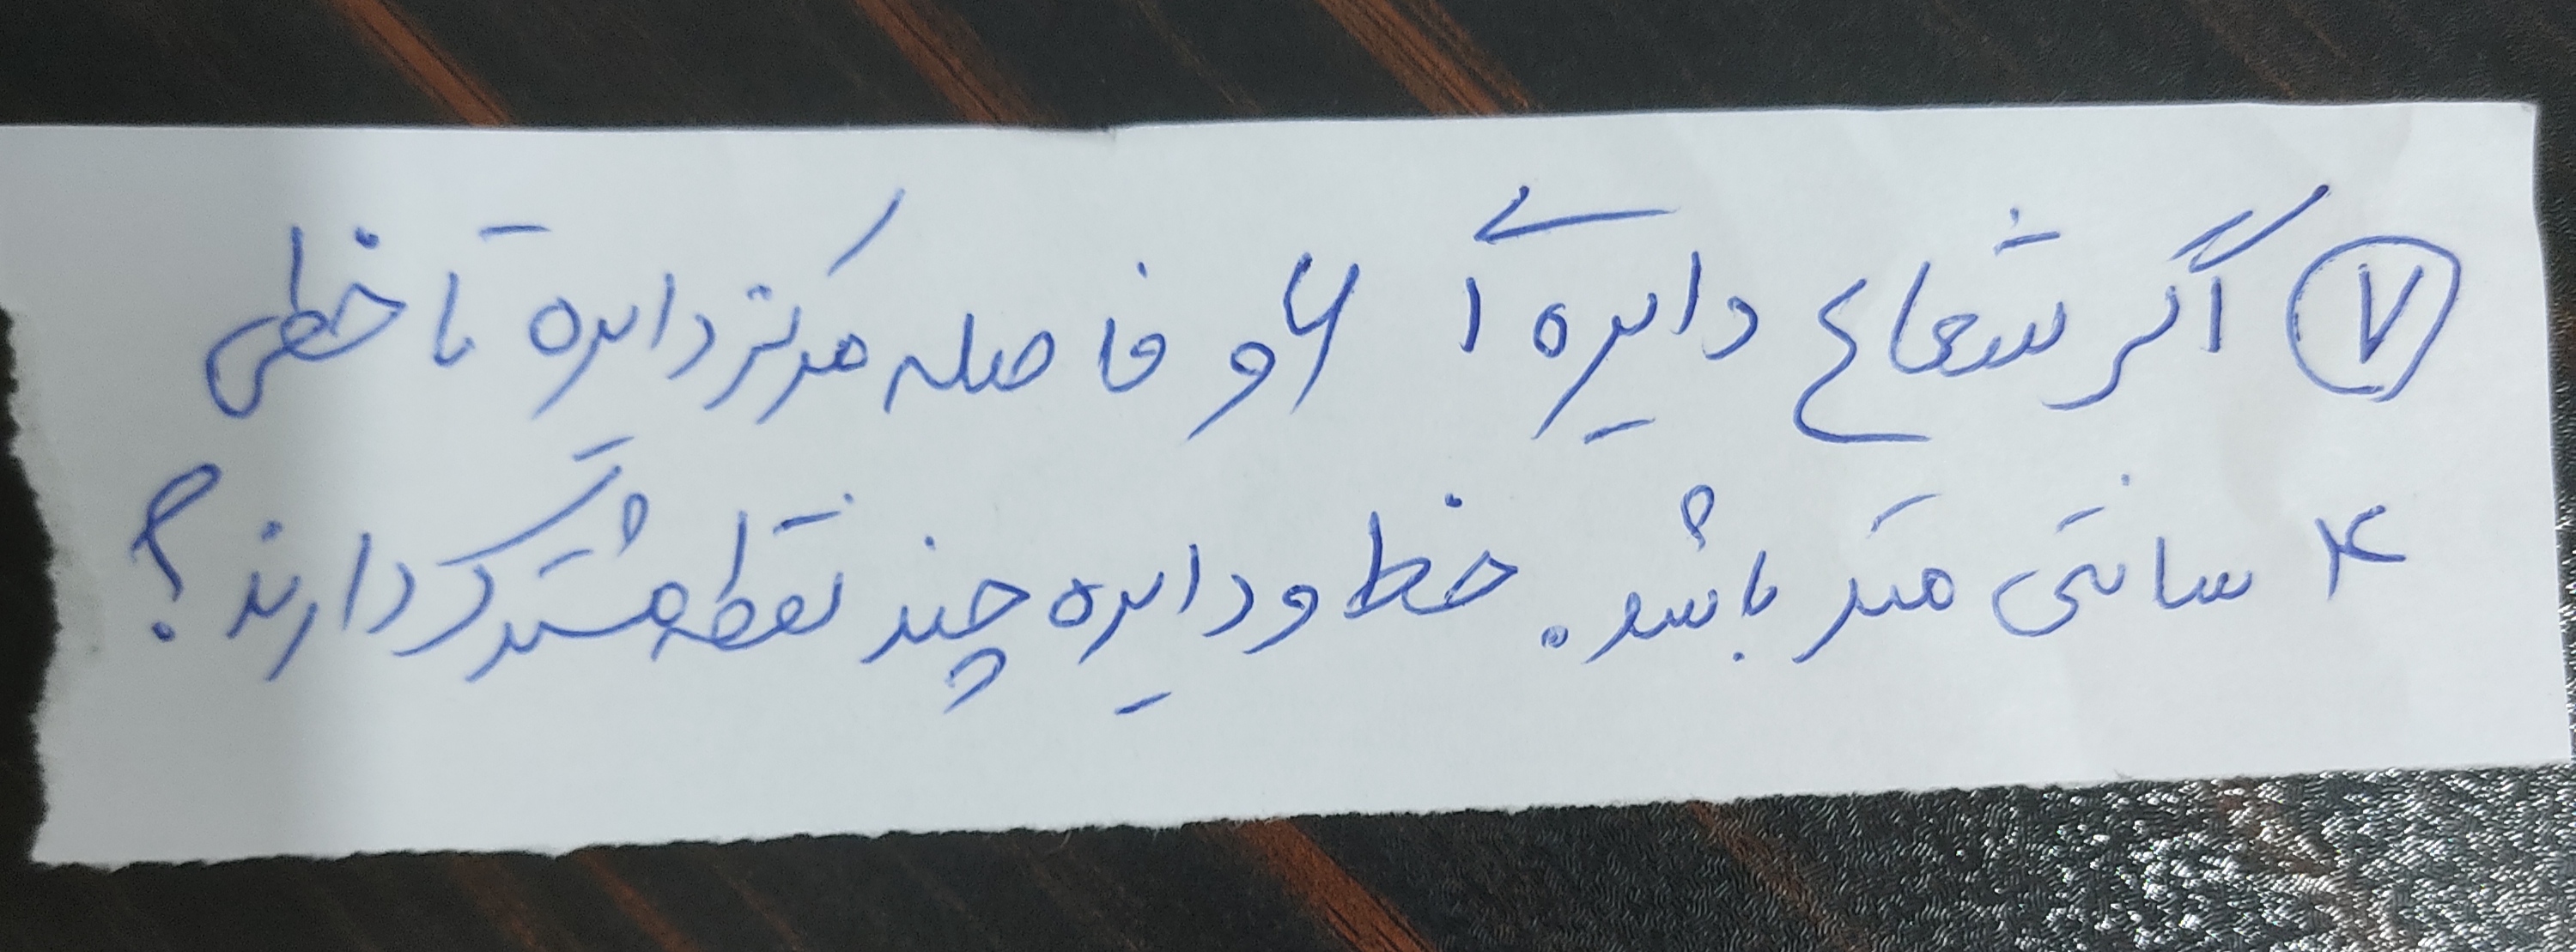 ۷ اگر شعاع دایره ای ۶ و فاصله مرکز دایره تا خطی
۴ سانتی متر باشد. خط و دایره چند نقطه مشترک دارند؟